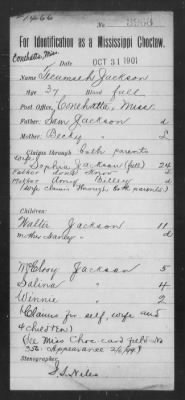 1466
3966
For Identification as a Mississippi Choctaw.
Conehatta, Miss
Date OCT 31 1901
Name Tecumseh Jackson
Age 37 Blood full
Post Office, Conehatta, Miss.
Father: Sam Jackson d
Mother: Becky " L
Claims through both parents
wife
Sophia Jackson (full) 24
Father
Mother Amy
(wife claims through both parents)
Children:
Walter Jackson 11
mother d
McElory Jackson 5
Salina " 4
Winnie " 2
Claims for self, wife and
4 children)
(See Miss Choc card field No
356. Appearance 2/6/99)
Stenographer
S.S. Niles